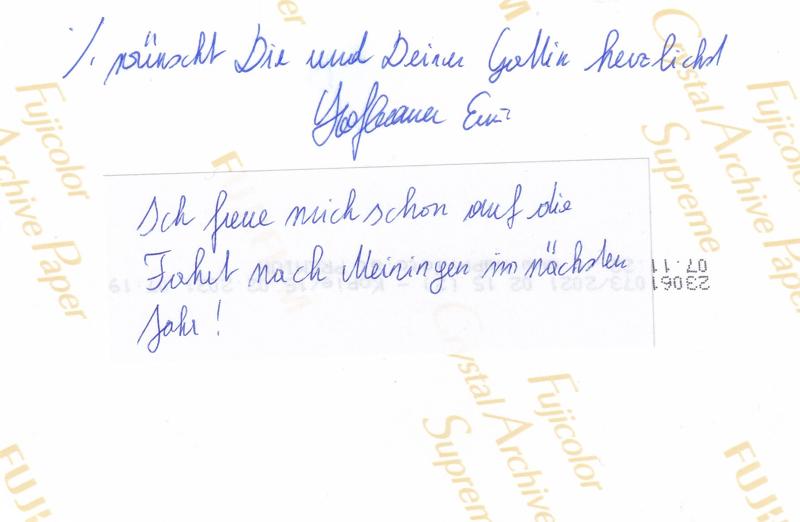 ./. wünscht Dir und Deiner Gattin herzlichst
Ich freue mich schon auf die
Fahrt nach Meiningen im nächsten
Jahr!
23061
07.11
Fujicolor
Crystal Archive Paper
Supreme
FUJIFILM